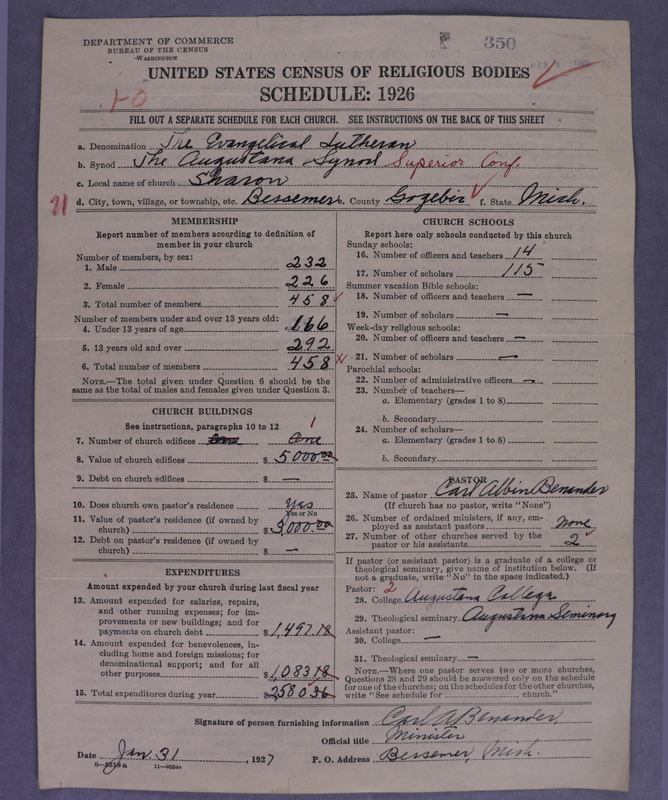 DEPARTMENT OF COMMERCE
BUREAU OF THE CENSUS
WASHINGTON
350
UNITED STATES CENSUS OF RELIGIOUS BODIES
SCHEDULE: 1926
1-0
FILL OUT A SEPARATE SCHEDULE FOR EACH CHURCH. SEE INSTRUCTIONS ON THE BACK OF THIS SHEET
a. Denomination The Evangelical Lutheran
b. Synod The Augustana Synod Superior Conf.
c. Local name of church Sharon
21 d. City, town, village, or township, etc. Bessemer e. County Gogebic f. State Mich.
MEMBERSHIP
Report number of members according to definition of
member in your church
Number of members, by sex:
1. Male 232
2. Female 226
3. Total number of members 458
Number of members under and over 13 years old:
4. Under 13 years of age 166
5. 13 years old and over 292
6. Total number of members 458
NOTE.—The total given under Question 6 should be the
same as the total of males and females given under Question 3.
CHURCH BUILDINGS
See instructions, paragraphs 10 to 12
7. Number of church edifices One 1
8. Value of church edifices $ 5000.00
9. Debt on church edifices $ —
10. Does church own pastor's residence Yes
Yes or No
11. Value of pastor's residence (if owned by
church) $ 3,000.00
12. Debt on pastor's residence (if owned by
church) $ —
EXPENDITURES
Amount expended by your church during last fiscal year
13. Amount expended for salaries, repairs,
and other running expenses; for im-
provements or new buildings; and for
payments on church debt $ 1,497.18
14. Amount expended for benevolences, in-
cluding home and foreign missions; for
denominational support; and for all
other purposes $ 1,083.18
15. Total expenditures during year $ 2,580.36
CHURCH SCHOOLS
Report here only schools conducted by this church
Sunday schools:
16. Number of officers and teachers 14
17. Number of scholars 115
Summer vacation Bible schools:
18. Number of officers and teachers —
19. Number of scholars —
Week-day religious schools:
20. Number of officers and teachers —
21. Number of scholars —
Parochial schools:
22. Number of administrative officers —
23. Number of teachers—
a. Elementary (grades 1 to 8)
b. Secondary
24. Number of scholars—
a. Elementary (grades 1 to 8)
b. Secondary
PASTOR
25. Name of pastor Carl Albin Benander
(If church has no pastor, write "None")
26. Number of ordained ministers, if any, em-
ployed as assistant pastors None
27. Number of other churches served by the
pastor or his assistants 2
If pastor (or assistant pastor) is a graduate of a college or
theological seminary, give name of institution below. (If
not a graduate, write "No" in the space indicated.)
Pastor: 2
28. College Augustana College
29. Theological seminary Augustana Seminary
Assistant pastor:
30. College —
31. Theological seminary —
NOTE.—Where one pastor serves two or more churches,
Questions 28 and 29 should be answered only on the schedule
for one of the churches; on the schedules for the other churches,
write "See schedule for church."
Signature of person furnishing information Carl A Benander,
Official title Minister
Date Jan. 31, 1927 P. O. Address Bessemer, Mich.